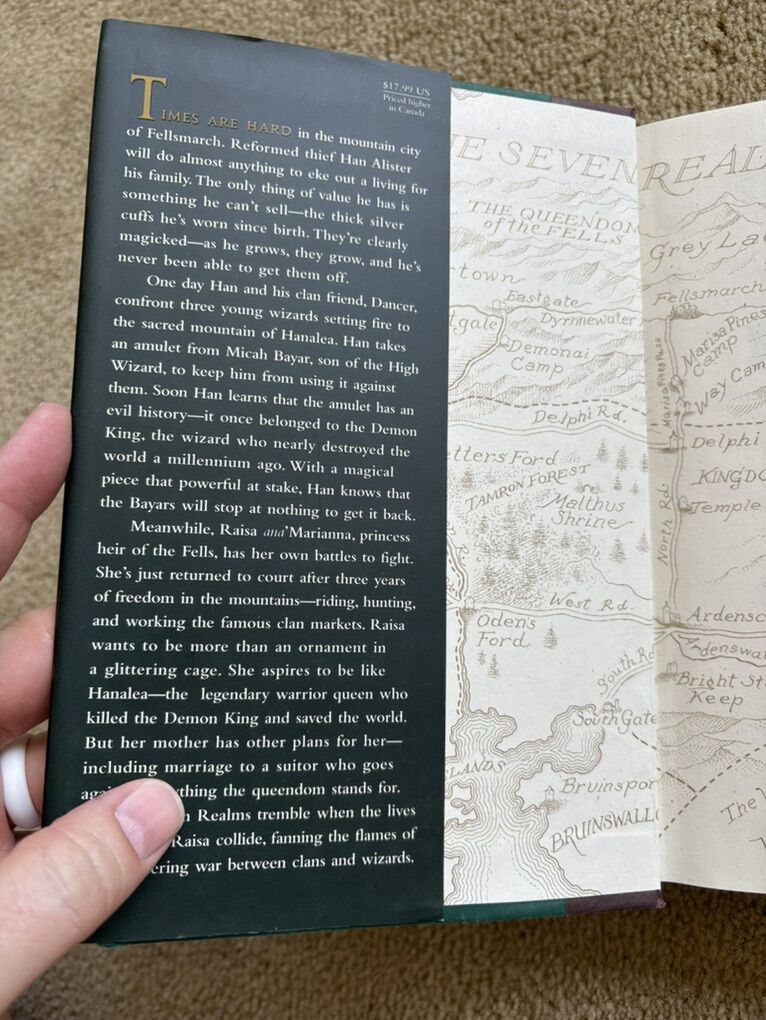 $17.99 US
Priced higher
in Canada
TIMES ARE HARD in the mountain city
of Fellsmarch. Reformed thief Han Alister
will do almost anything to eke out a living for
his family. The only thing of value he has is
something he can't sell—the thick silver
cuffs he's worn since birth. They're clearly
magicked—as he grows, they grow, and he's
never been able to get them off.
One day Han and his clan friend, Dancer,
confront three young wizards setting fire to
the sacred mountain of Hanalea. Han takes
an amulet from Micah Bayar, son of the High
Wizard, to keep him from using it against
them. Soon Han learns that the amulet has an
evil history—it once belonged to the Demon
King, the wizard who nearly destroyed the
world a millennium ago. With a magical
piece that powerful at stake, Han knows that
the Bayars will stop at nothing to get it back.
Meanwhile, Raisa ana'Marianna, princess
heir of the Fells, has her own battles to fight.
She's just returned to court after three years
of freedom in the mountains—riding, hunting,
and working the famous clan markets. Raisa
wants to be more than an ornament in
a glittering cage. She aspires to be like
Hanalea—the legendary warrior queen who
killed the Demon King and saved the world.
But her mother has other plans for her—
including marriage to a suitor who goes
thing the queendom stands for.
Realms tremble when the lives
Raisa collide, fanning the flames of
ering war between clans and wizards.
E SEVEN REAL
THE QUEENDOM
of the FELLS
Grey La
rtown
Eastgate
Fellsmarch
tgale
Dyrnnewater
Demonai
Camp
Marisa Pines
Camp
Marisa Pines Pass
Way Cam
Delphi Rd.
Delphi
tters Ford
TAMRON FOREST
Malthus
Shrine
KINGDO
Temple
North Rd.
West Rd.
Odens
Ford
Ardensc
Ardenswa
South Rd
Bright St
Keep
South Gate
LANDS
Bruinspor
BRUINSWALL
The